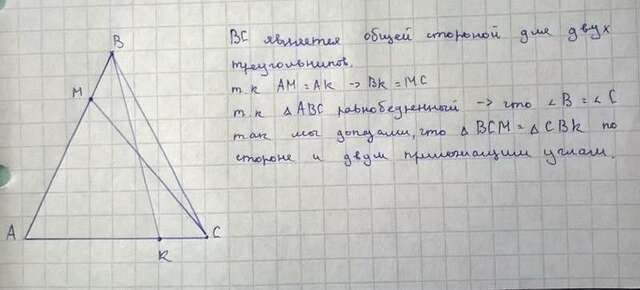 B
M
A
K
C
BC является общей стороной для двух
треугольников.
т.к AM = AK -> BK = MC
т.к △ABC равнобедренный -> что ∠B = ∠C
так мы доказали, что △BCM = △CBK по
стороне и двум прилежащим углам.